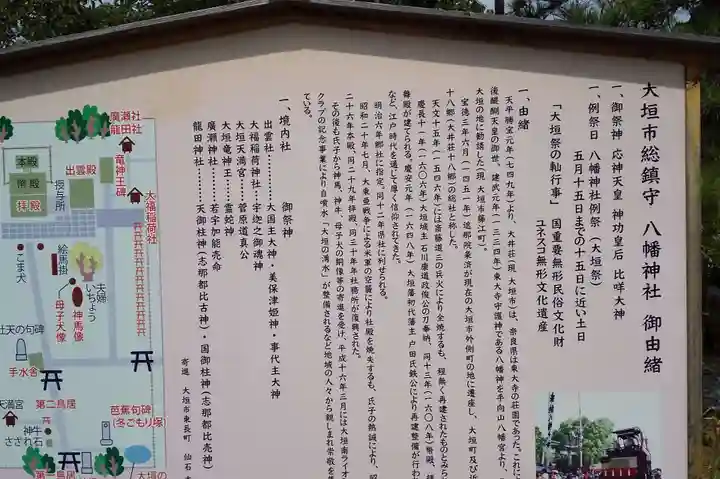 大垣市総鎮守 八幡神社 御由緒
一、御祭神 応神天皇 神功皇后 比咩大神
一、例祭日 八幡神社例祭(大垣祭)
五月十五日までの十五日に近い土日
「大垣祭の軕行事」 国重要無形民俗文化財
ユネスコ無形文化遺産
一、由緒
天平勝宝元年(七四九年)より、大井荘(現 大垣市)は、奈良県は東大寺の荘園であった。これに
後醍醐天皇の御世、建武元年(一三三四年)東大寺守護神である八幡神を手向山八幡宮より、
大垣の地に勧請した(現 大垣市藤江町)。
宝徳三年六月(一四五一年)遮那院乗済が現在の大垣市外側町の地に遷座し、大垣町及び近
十八郷(大井荘十八郷)の総社と称した。
天文十五年(一五四六年)には斎藤道三の兵火により全焼するも、程無く再建されたものとみら
慶長十一年(一六〇六年)大垣城主 石川康道政俊公の刀奉納、同十三年(一六〇八年)幣殿、拝
舞殿が建てられる。慶安元年(一六四八年)大垣藩初代藩主 戸田氏鉄公により再建整備が行わ
など、江戸時代を通じて厚く信仰されてきた。
明治六年郷社に指定。同十二年県社に列せられる。
昭和二十年七月、大東亜戦争による米軍の空襲により社殿を焼失するも、氏子の熱誠により、昭
二十六年本殿、同二十九年拝殿、同三十年年社務所が復興された。
その後も氏子から神馬、神牛、母子犬の銅像等の寄進を受け、平成十六年三月には大垣南ライオ
クラブの記念事業により自噴水「大垣の湧水」が整備されるなど地域の人々から親しまれ崇敬を集
ている。
一、境内社 御祭神
出雲社……大国主大神・美保津姫神・事代主大神
大福稲荷神社……宇迦之御魂神
大垣天満宮……菅原道真公
大垣竜神王……霊蛇神
廣瀬神社……若宇加能売命
龍田神社……天御柱神(志那都比古神)・国御柱神(志那都比売神)
寄進 大垣市東長町 仙石
廣瀬社
龍田社
本殿
幣殿
拝殿
授与所
出雲殿
竜神王碑
大福稲荷社
こま犬
絵馬掛
夫婦いちょう
母子犬像
神馬像
社天の句碑
手水舎
第二鳥居
天満宮
神牛
さざれ石
芭蕉句碑
(冬ごもり塚)
第一鳥居
大垣の